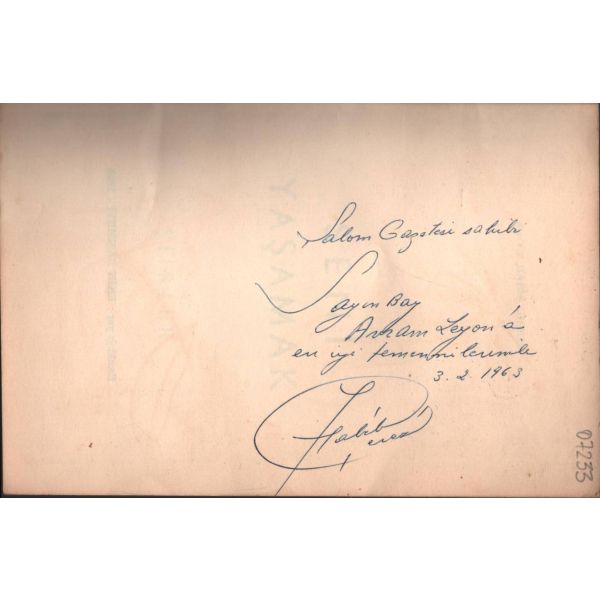 Şalom Gazetesi sahibi
Sayın Bay
Avram Leyon'a
en iyi temennilerimle
3.2.1963
Habib
07233
YAŞAMAK